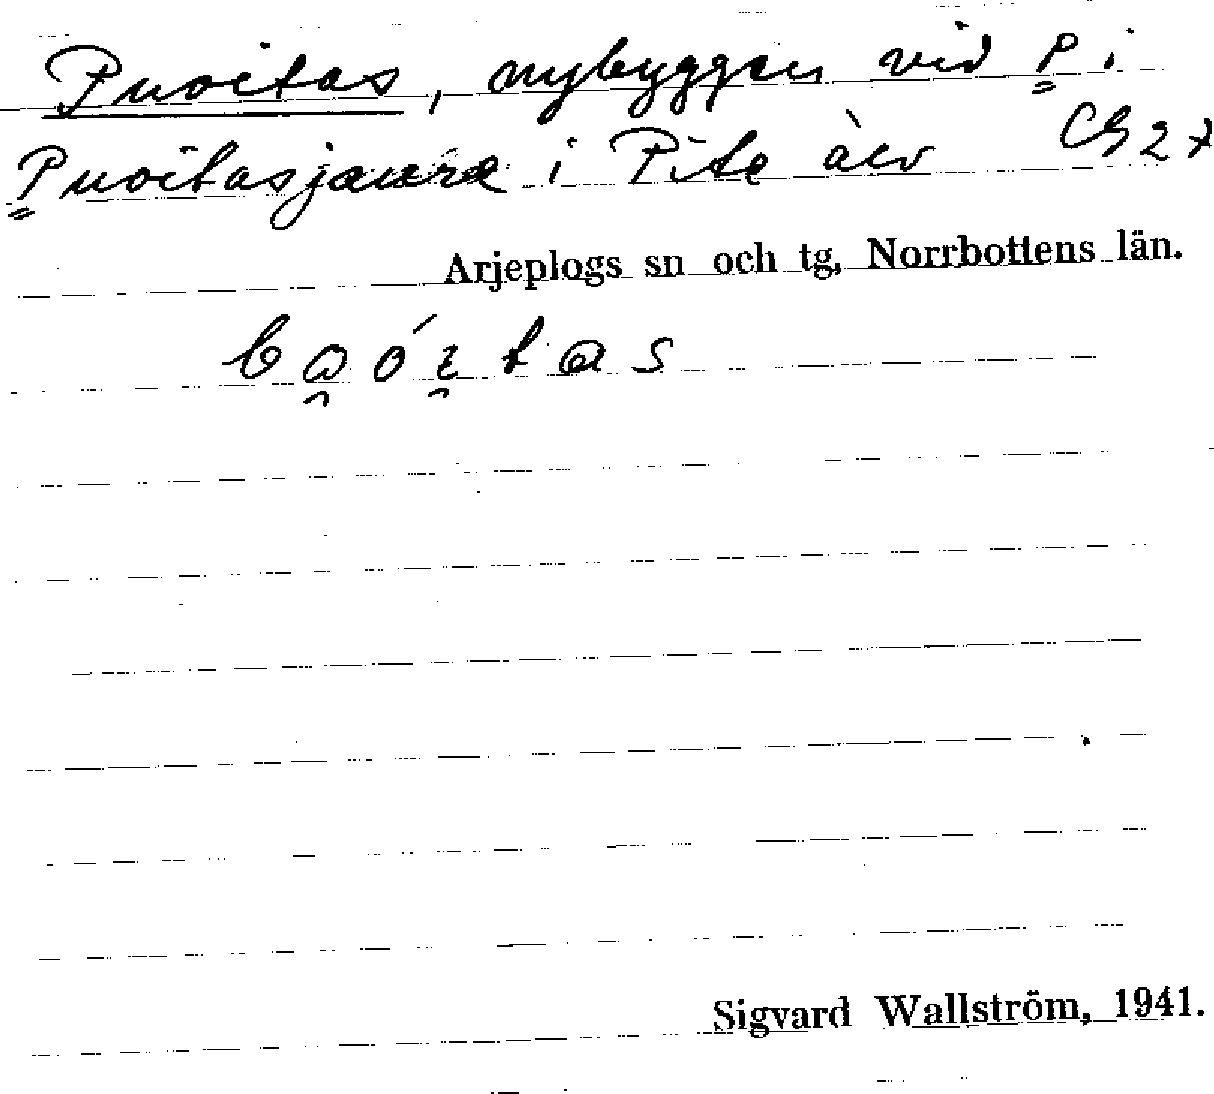 Puoitas, nybyggen vid P i
Puoitasjaure i Pite älv
Arjeplogs sn och tg, Norrbottens län.
Sigvard Wallström, 1941.